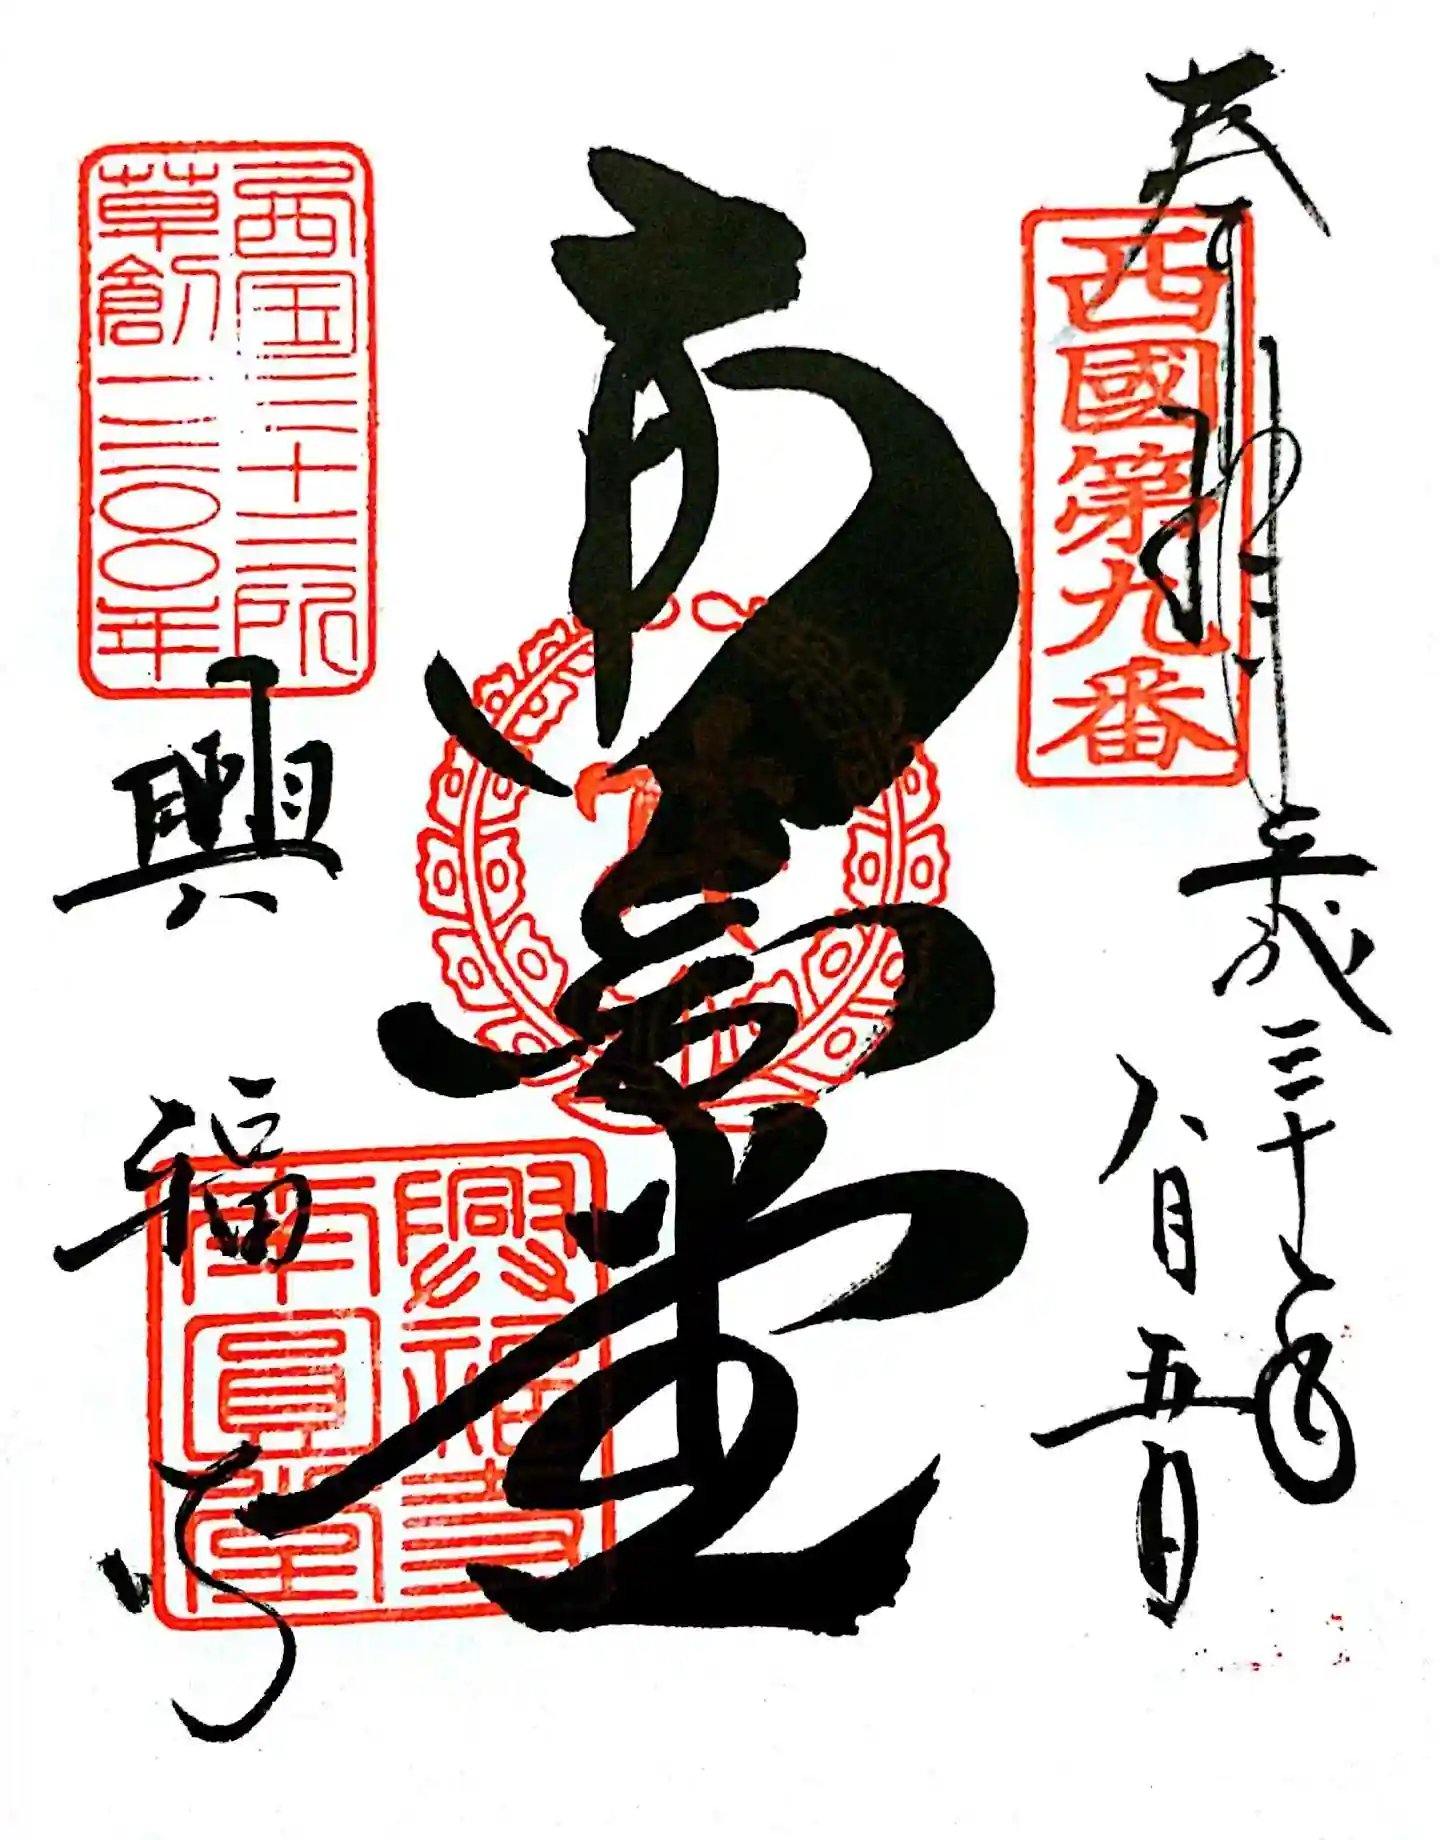 奉拝
西國第九番
平成三十年
八月五日
南圓堂
西国三十三所
草創一三〇〇年
興福寺
興福寺
南圓堂